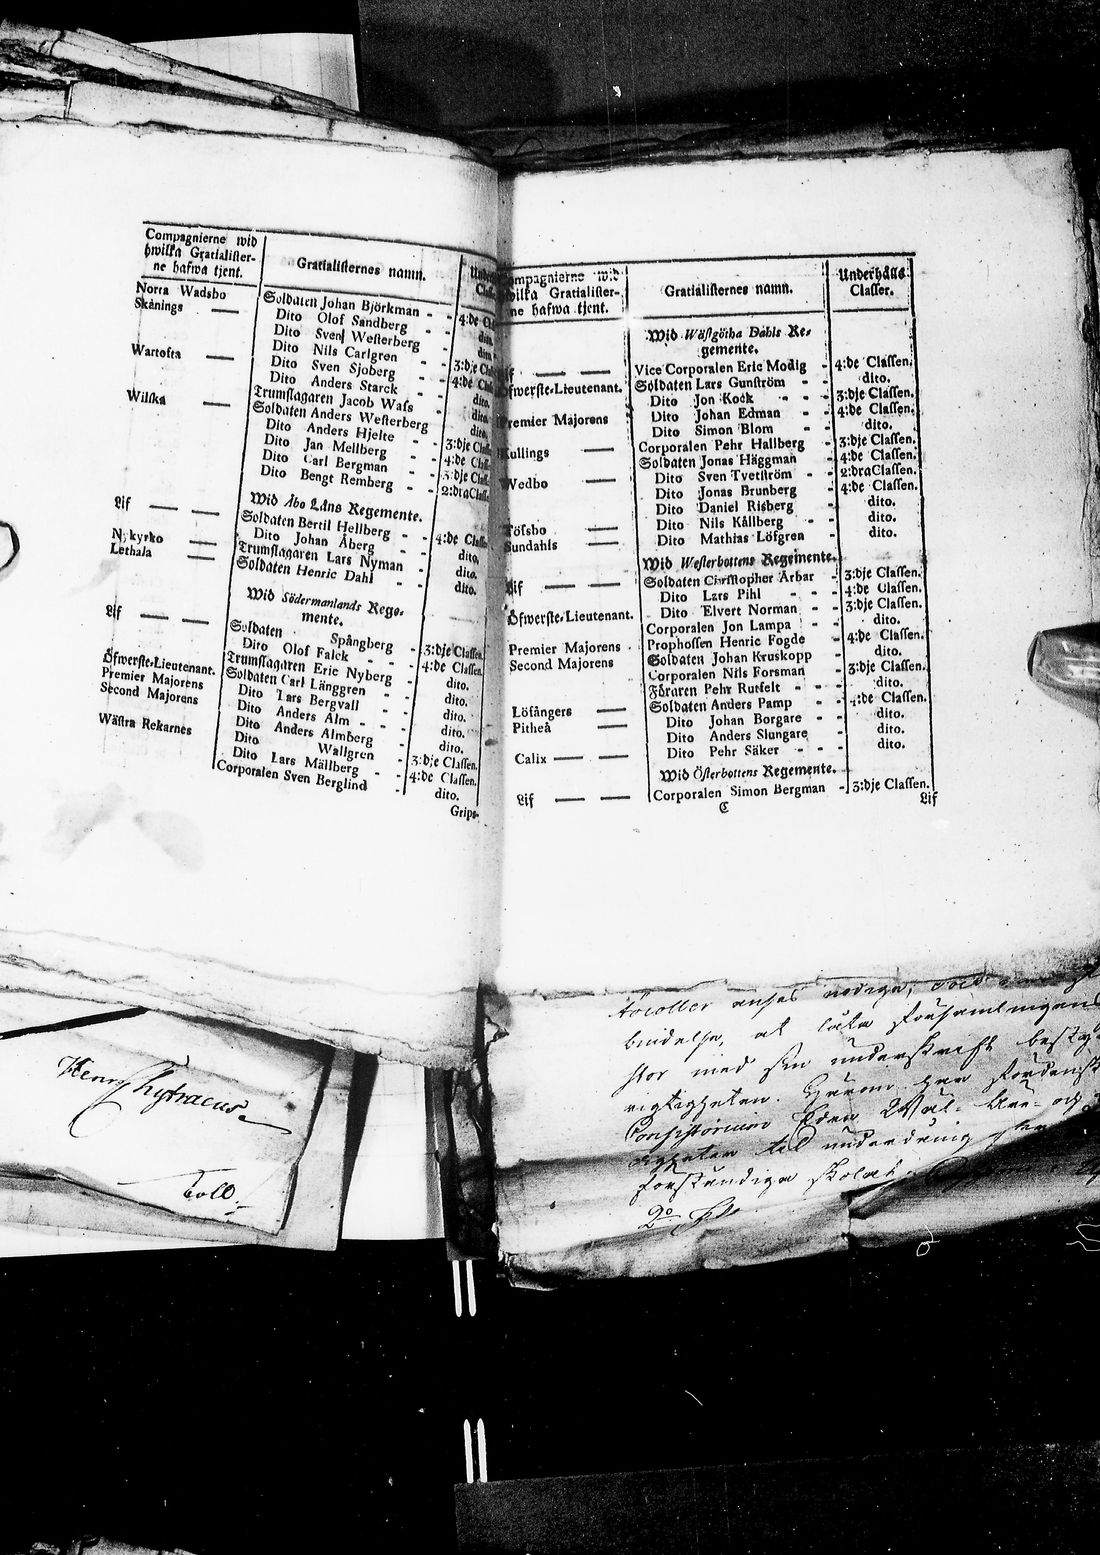 Compagnierne wid
hwilka Gratialister-
ne hafwa tjent.
Gratialisternes namn.
Norra Wadsbo
Skånings —
Soldaten Johan Björkman - -
Dito Olof Sandberg - - 4:de
Dito Sven Westerberg dito
Dito Nils Carlgren - - dito
Wartofta —
Dito Sven Sjöberg - - 3:dje
Dito Anders Starck - - 4:de
Trumslagaren Jacob Wass dito.
Wilska —
Soldaten Anders Westerberg dito.
Dito Anders Hjelte - - dito.
Dito Jan Mellberg - - 3:dje
Dito Carl Bergman - - 4:de
Dito Bengt Remberg - - 3:dje
2:dra
Wid Åbo Läns Regemente.
Lif — —
Soldaten Bertil Hellberg - - 4:de
Dito Johan Åberg - - dito.
Nykyrko —
Trumslagaren Lars Nyman - dito.
Lethala —
Soldaten Henric Dahl - - dito.
Wid Södermanlands Rege-
mente.
Lif — —
Soldaten Spångberg - 3:dje Classen.
Dito Olof Falck - - - 4:de Classen.
Trumslagaren Eric Nyberg - dito.
Öfwerste-Lieutenant.
Soldaten Carl Länggren - - dito.
Premier Majorens
Dito Lars Bergvall - - dito.
Second Majorens
Dito Anders Alm - - - dito.
Dito Anders Almberg - dito.
Wästra Rekarnes
Dito Wallgren - 3:dje Classen.
Dito Lars Mällberg - - 4:de Classen.
Corporalen Sven Berglind - dito.
Grips-
Compagnierne wid
hwilka Gratialister-
ne hafwa tjent.
Gratialisternes namn.
Underhålls
Classer.
Wid Wästgötha Dahls Re-
gemente.
Lif — —
Vice Corporalen Eric Modig - 4:de Classen.
Öfwerste-Lieutenant.
Soldaten Lars Gunström - - dito.
Dito Jon Kock - - - 3:dje Classen.
Premier Majorens
Dito Johan Edman - - 4:de Classen.
Dito Simon Blom - - dito.
Kullings —
Corporalen Pehr Hallberg - 3:dje Classen.
Soldaten Jonas Häggman - 4:de Classen.
Wedbo —
Dito Sven Tvetström - - 2:dra Classen.
Dito Jonas Brunberg - 4:de Classen.
Dito Daniel Risberg - dito.
Tösbo —
Dito Nils Kållberg - - dito.
Sundahls —
Dito Mathias Löfgren - dito.
Wid Westerbottens Regemente.
Lif — —
Soldaten Christopher Arbar - 3:dje Classen.
Dito Lars Pihl - - - 4:de Classen.
Öfwerste-Lieutenant.
Dito Elvert Norman - - 3:dje Classen.
Corporalen Jon Lampa - - dito.
Premier Majorens
Prophossen Henric Fogde - 4:de Classen.
Second Majorens
Soldaten Johan Kruskopp - dito.
Corporalen Nils Forsman 3:dje Classen.
Föraren Pehr Rutfelt - - - dito.
Löfångers —
Soldaten Anders Pamp - - 4:de Classen.
Pitheå —
Dito Johan Borgare - - dito.
Dito Anders Slungare dito.
Calix — —
Dito Pehr Säker - - - dito.
Wid Österbottens Regemente.
Lif — —
Corporalen Simon Bergman - 3:dje Classen.
C
Lif
anses nödige,
bindelse, at låta Församlingens
med sin underskrift
rigtigheten. Hwarom
Consistorium
til underdånig
2o
Henr Chytraeus.